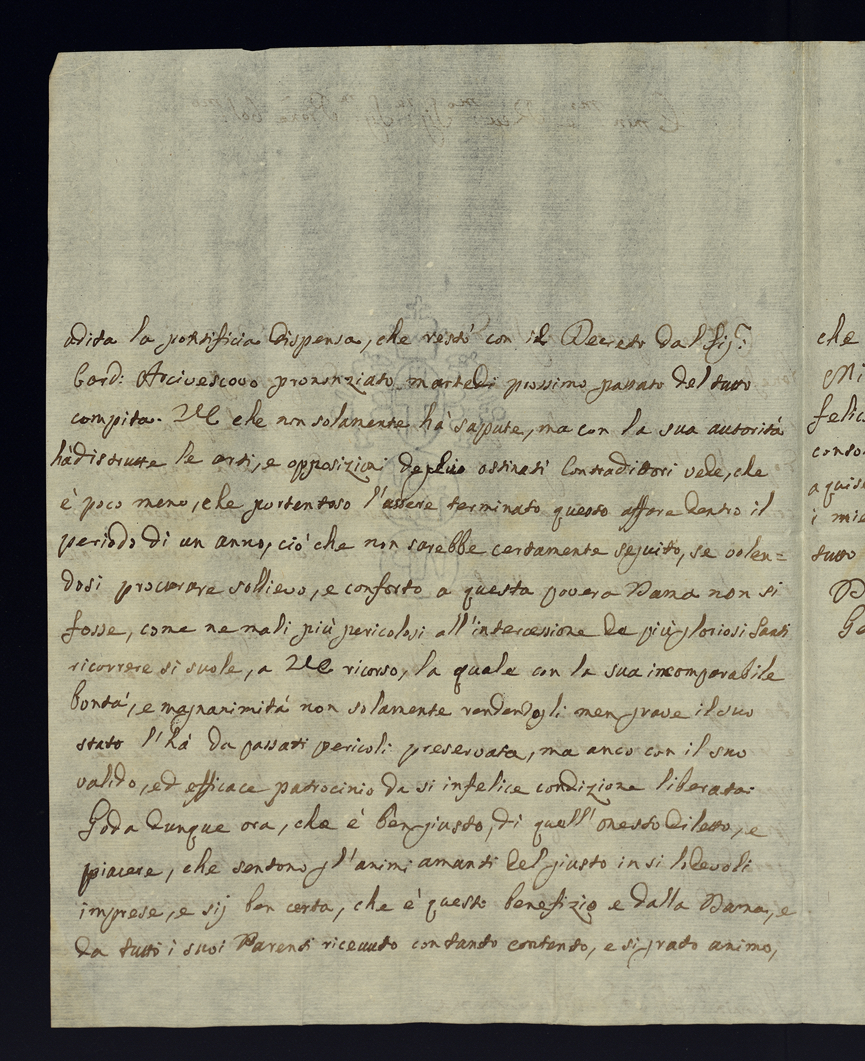 adita la pontificia dispensa, che restò con il Decreto dal Sigr.
Card: Arcivescovo pronunziato martedi prossimo passato del tutto
compita. VE che non solamente hà sapute, ma con la sua autorità
hà distrutte le arti, e opposizioni degl'iu ostinati Contradittori vede, che
è poco meno, che portentoso l'essere terminato questo affare dentro il
periodo di un anno, ciò che non sarebbe certamente seguito, se volen=
dosi procurare sollievo, e conforto a questa povera Dama non si
fosse, come ne mali più pericolosi all'intercessione de più gloriosi Santi
ricorrere si suole, a VE ricorso, la quale con la sua incomparabile
bontà, e magnanimità non solamente rendendogli men grave il suo
stato l'hà da passati pericoli preservata, ma anco con il suo
valido, ed efficace patrocinio da si infelice condizione liberata.
Goda dunque ora, che è ben giusto, di quell'onesto diletto, e
piacere, che sentono gl'animi amanti del giusto in si lodevoli
imprese, e sij ben certa, che è questo benefizio e dalla Dama, e
da tutti i suoi Parenti ricevuto con tanto contento, e si grato animo,
che
Mi
felic
conso
a quis
i mie
tutto